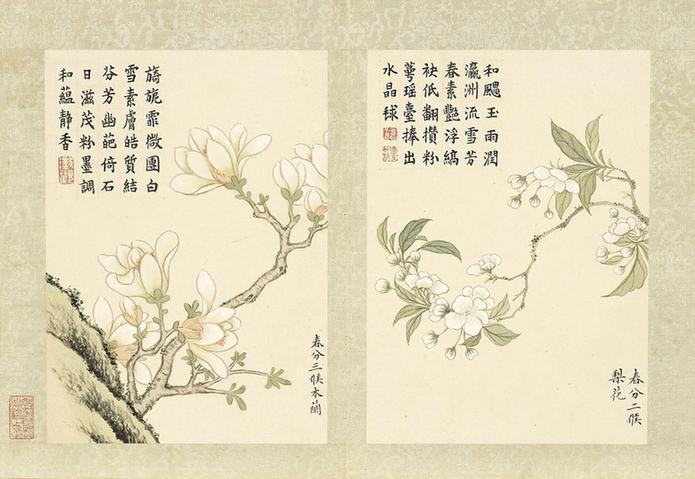 和颸玉雨潤
瀛洲流雪芳
春素艷浮縞
袂低翻攢粉
萼瑶臺捧出
水晶毬
春分二候
梨花
旖旎霏微團白
雪素膚皓質結
芬芳幽葩倚石
日滋茂粉墨調
和蘊静香
春分三候木蘭